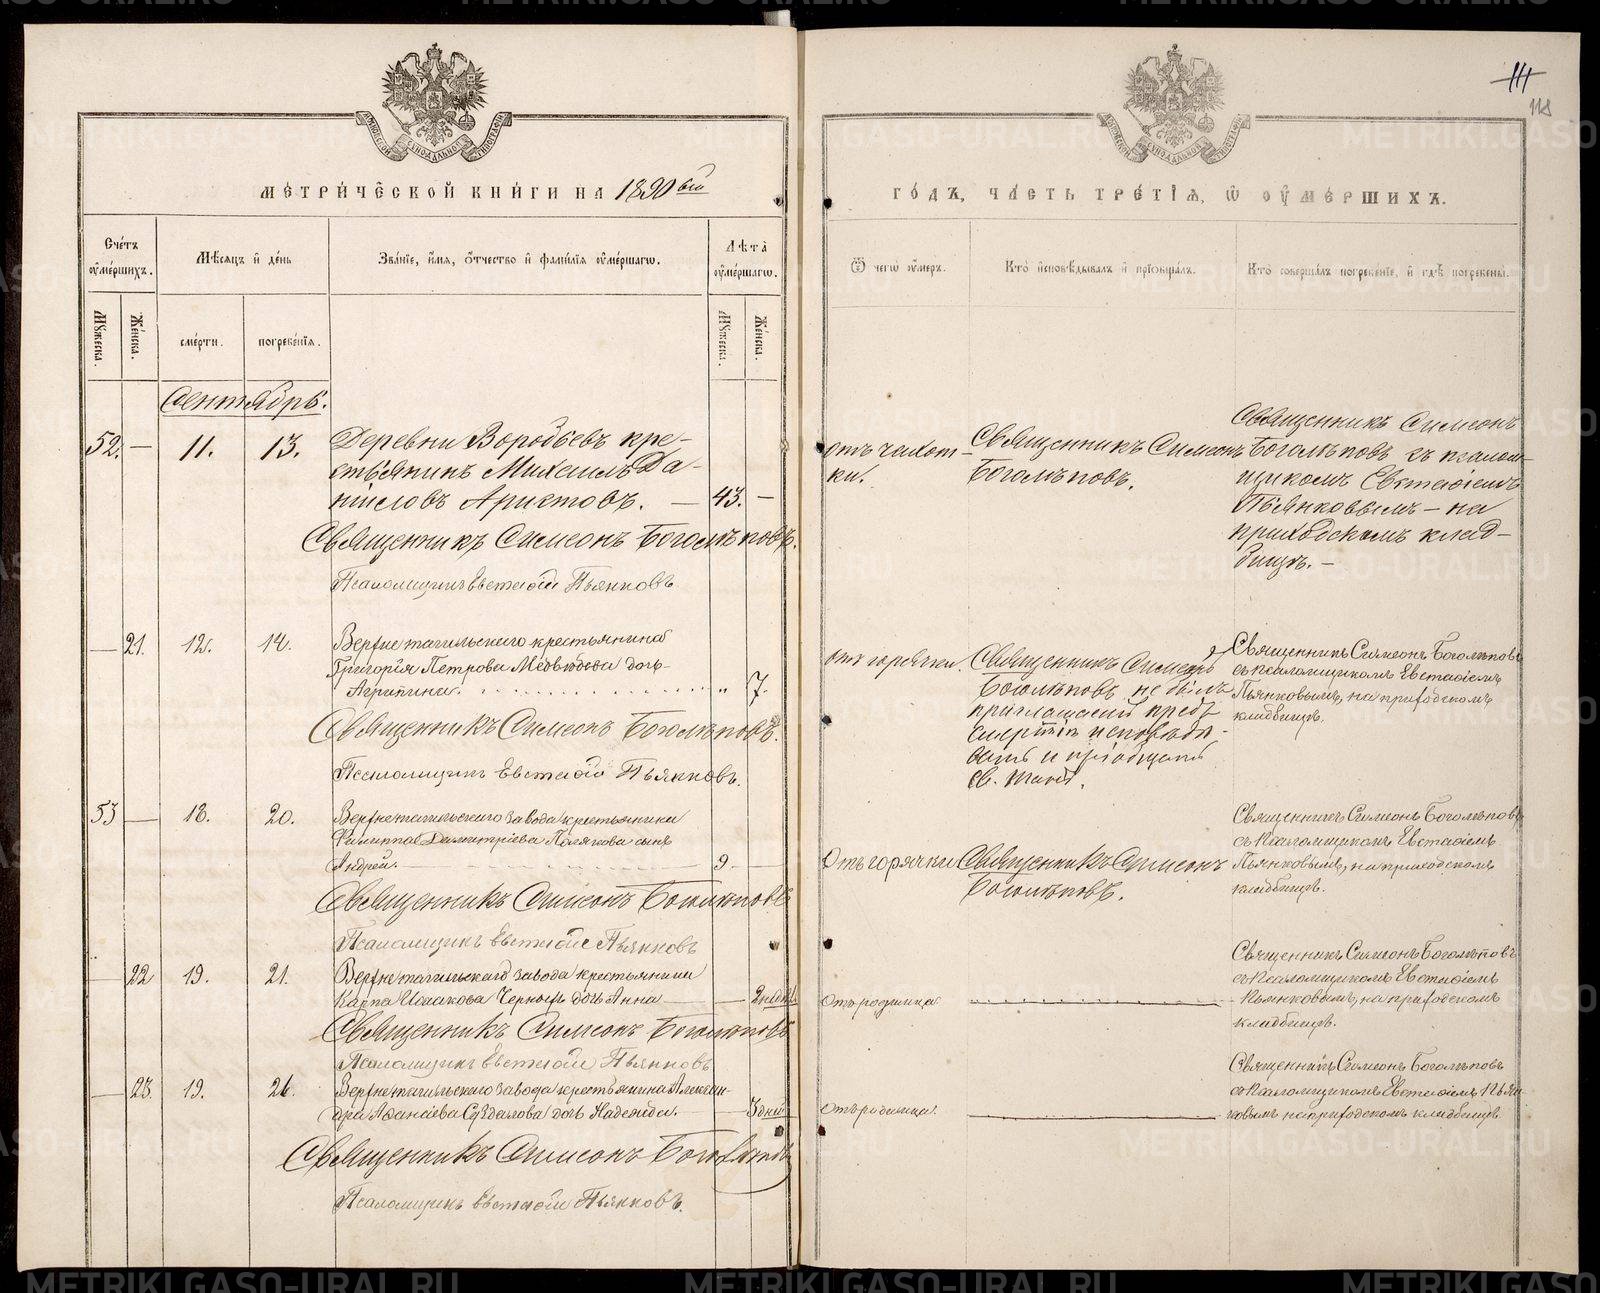 111
118
МЕТРИЧЕСКОЙ КНИГИ НА 1890вый
ГОДЪ, ЧАСТЬ ТРЕТІЯ, Ѿ ОУМЕРШИХЪ.
Счетъ оумершихъ.
Мѣсяцъ и день
Званіе, имя, отчество и фамилія оумершагѡ.
Лѣта оумершагѡ.
Ѿ чегѡ оумеръ.
Кто исповѣдывалъ и пріобщалъ.
Кто совершалъ погребеніе, и гдѣ погребены.
Мужеска.
Женска.
смерти.
погребенія.
Мужеска.
Женска.
Сентябрь.
52. — 11. 13. Деревни Воробьевъ кре-
стьянинъ Михаилъ Да-
ніиловъ Аристовъ. — 43. —
Священникъ Симеонъ Боголѣповъ.
Псаломщикъ Евстафій Пьянковъ
отъ чахот-
ки.
Священникъ Симеонъ
Боголѣповъ.
Священникъ Симеонъ
Боголѣповъ съ псалом-
щикомъ Евстафіемъ
Пьянковымъ — на
приходскомъ клад-
бищѣ. —
— 21. 12. 14. Верхнетагильскаго крестьянина
Григорія Петрова Медвѣдева дочь
Агрипина. " 7.
Священникъ Симеонъ Боголѣповъ.
Псаломщикъ Евстафій Пьянковъ.
отъ горячки.
Священникъ Симеонъ
Боголѣповъ не былъ
приглашенъ предъ
смертію исповѣды-
вать и пріобщать
Св. Таинъ.
Священникъ Симеонъ Боголѣповъ
съ псаломщикомъ Евстафіемъ
Пьянковымъ, на приходскомъ
кладбищѣ.
53 — 18. 20. Верхнетагильскаго завода крестьянина
Филиппа Димитріева Полякова сынъ
Андрей. 9
Священникъ Симеонъ Боголѣповъ
Псаломщикъ Евстафій Пьянковъ
Отъ горячки
Священникъ Симеонъ
Боголѣповъ.
Священникъ Симеонъ Боголѣповъ
съ псаломщикомъ Евстафіемъ
Пьянковымъ, на приходскомъ
кладбищѣ.
— 22 19. 21. Верхнетагильскаго завода крестьянина
Карпа Исаакова Черныхъ дочь Анна — 2 нед.
Священникъ Симеонъ Боголѣповъ
Псаломщикъ Евстафій Пьянковъ
отъ родимца
Священникъ Симеонъ Боголѣповъ
съ псаломщикомъ Евстафіемъ
Пьянковымъ, на приходскомъ
кладбищѣ.
— 23. 19. 21. Верхнетагильскаго завода крестьянина Алексан-
дра Аѳанасіева Суздалова дочь Надежда. — 3 дня
Священникъ Симеонъ Боголѣповъ
Псаломщикъ Евстафій Пьянковъ.
отъ родимца.
Священникъ Симеонъ Боголѣповъ
съ псаломщикомъ Евстафіемъ Пьян-
ковымъ на приходскомъ кладбищѣ
METRIKI.GASO-URAL.RU